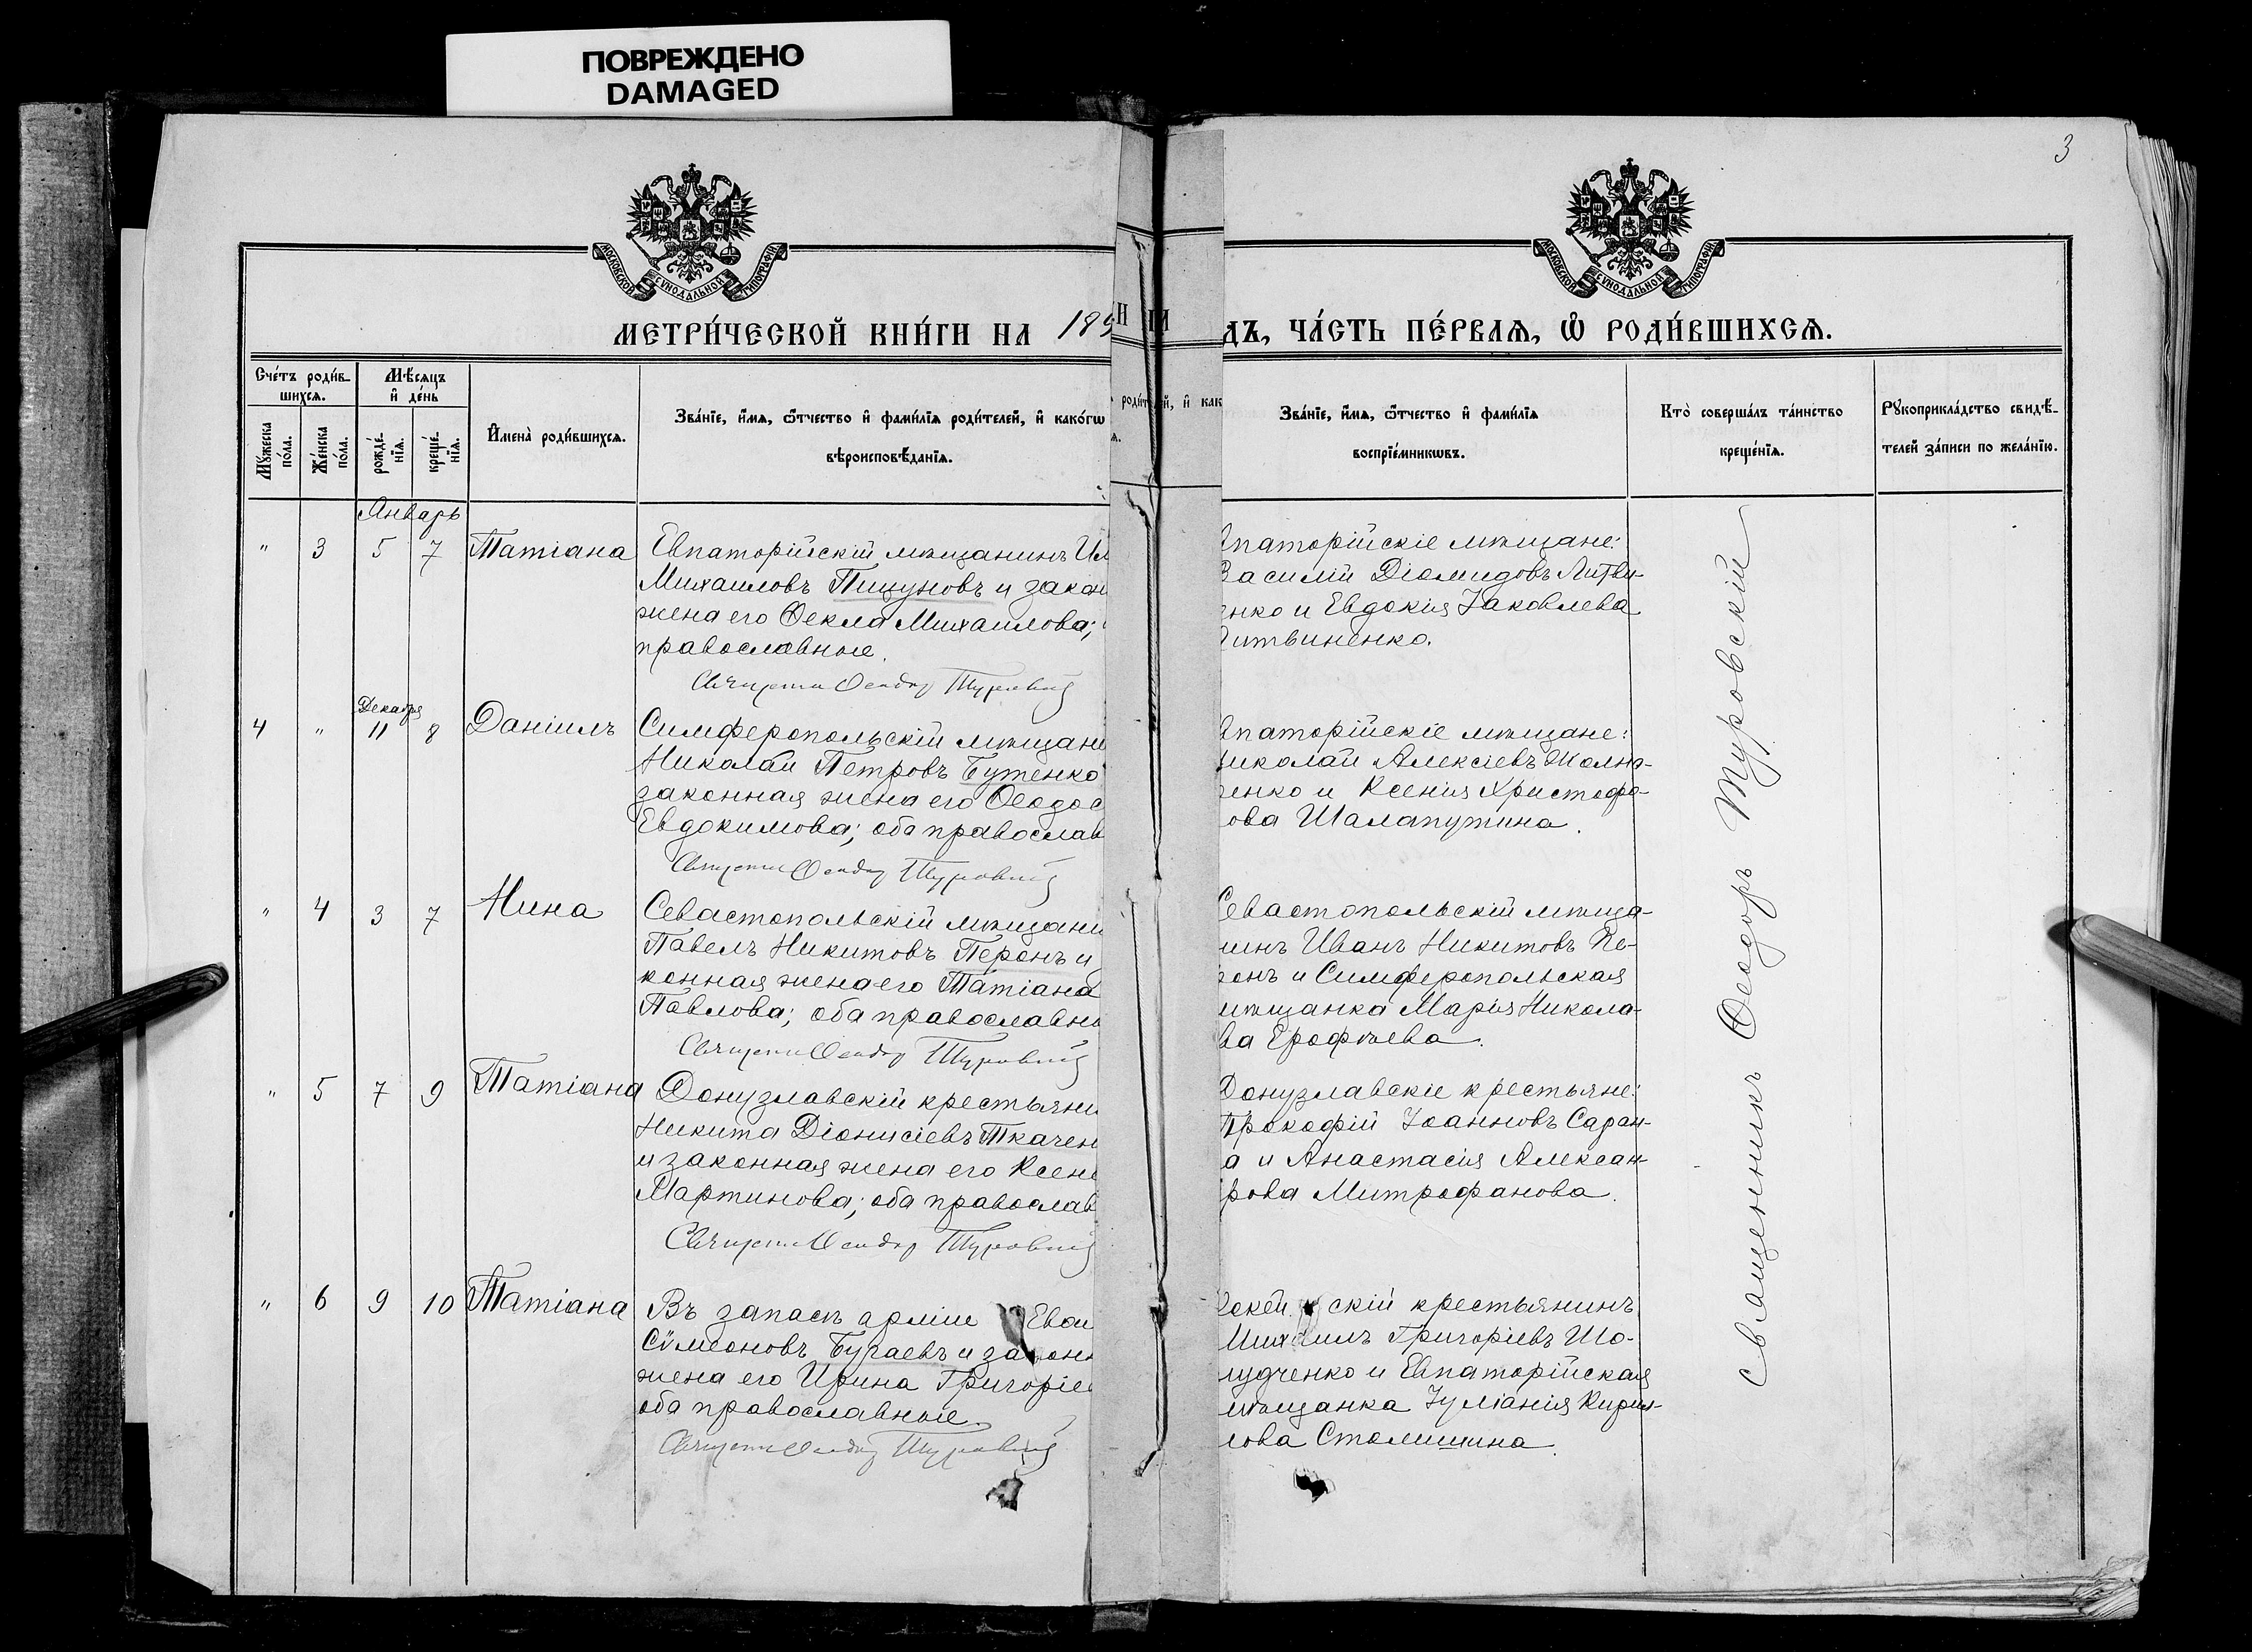 ПОВРЕЖДЕНО
DAMAGED
3
МОСКОВСКОЙ СѴНОДАЛЬНОЙ ТИПОГРАФІИ
МОСКОВСКОЙ СѴНОДАЛЬНОЙ ТИПОГРАФІИ
МЕТРИ́ЧЕСКОЙ КНИ́ГИ НА 189
ДЪ, ЧА́СТЬ ПЕ́РВАѦ, Ѡ҆ РОДИ́ВШИХСѦ.
Сче́тъ роди́в-
шихсѧ.
Мꙋ́жеска по́ла.
Же́нска по́ла.
Мѣ́сѧцъ
и҆ де́нь
рожде́-
нїѧ.
креще́-
нїѧ.
И҆мена̀ роди́вшихсѧ.
Зва́нїе, и҆́мѧ, ѻ҆́тчество и҆ фами́лїѧ роди́телей, и҆ како́гѡ
вѣроисповѣ́данїѧ.
Зва́нїе, и҆́мѧ, ѻ҆́тчество и҆ фами́лїѧ
воспрїе́мникѡвъ.
Кто̀ соверша́лъ та́инство
креще́нїѧ.
Рꙋкоприкла́дство свидѣ́-
телей за́писи по жела́нїю.
Январь
" 3 5 7 Татіана
Евпаторійскій мѣщанинъ
Михаиловъ Пицуновъ и закон
жена его Ѳекла Михаилова;
православные.
Священн Ѳеодор Туровскій
паторійскіе мѣщане:
Василій Діомидовъ Литви-
енко и Евдокія Іаковлева
Литвиненко.
Декабря
4 " 11 8 Даніилъ
Симферопольскій мѣщани
Николай Петровъ Бутенко
законная жена его Ѳеодос
Евдокимова; оба православ
Священн Ѳеодор Туровскій
паторійскіе мѣщане:
Николай Алексіевъ
енко и Ксенія Христофо-
рова Шалапутина.
" 4 3 7 Нина
Севастопольскій мѣщани
Павелъ Никитовъ Перонъ и
конная жена его Татіана
Павлова; оба православны
Священн Ѳеодор Туровскій
Севастопольскій мѣща-
нинъ Иванъ Никитовъ Пе-
ронъ и Симферопольская
мѣщанка Марія Никола-
ва Ерофѣева.
" 5 7 9 Татіана
Донузлавскій крестьяни
Никита Діонисіевъ Ткачен
и законная жена его Ксен
Мартинова; оба православ
Священн Ѳеодор Туровскій
Донузлавскіе крестьяне:
Прокофій Іоанновъ Саран-
а и Анастасія Алексан-
рова Митрофанова.
" 6 9 10 Татіана
Въ запасѣ арміи
Сѵмеоновъ Бугаевъ и законн
жена его Ирина Григоріе
оба православные.
Священн Ѳеодор Туровскій
скій крестьянинъ
Михаилъ Григоріевъ Шо-
лудченко и Евпаторійская
мѣщанка Іуліанія Кирил-
лова Столишина.
Священникъ Ѳеодоръ Туровскій